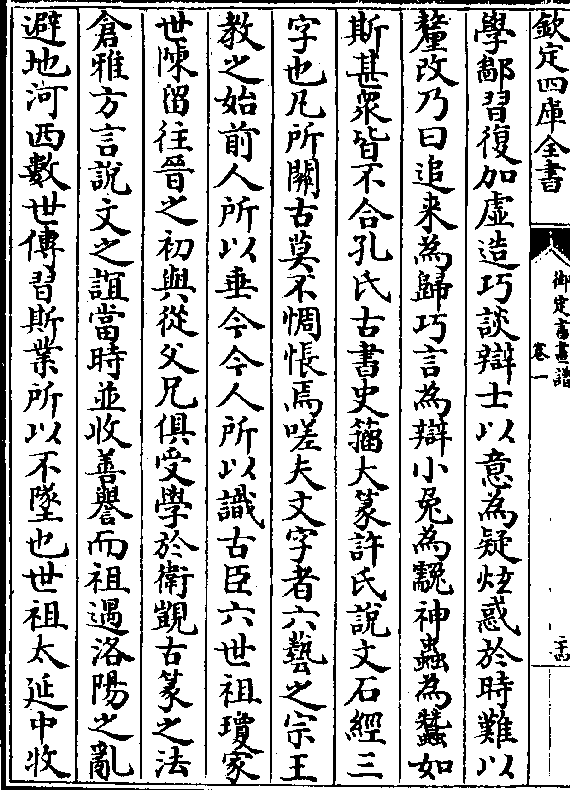 欽定四庫全書
御定書畫譜
卷一
學鄙習復加虛造巧談辯士以意為疑炫惑於時難以
釐改乃曰追来為歸巧言為辯小兔為䨲神蟲為蠶如
斯甚衆皆不合孔氏古書史籀大篆許氏說文石經三
字也凡所闗古莫不惆悵焉嗟夫文字者六藝之宗王
教之始前人所以垂今今人所以識古臣六世祖瓊家
世陳留往晉之初與從父兄俱受學於衛覬古篆之法
倉雅方言說文之誼當時並收善譽而祖遇洛陽之亂
避地河西數世傳習斯業所以不墜也世祖太延中收